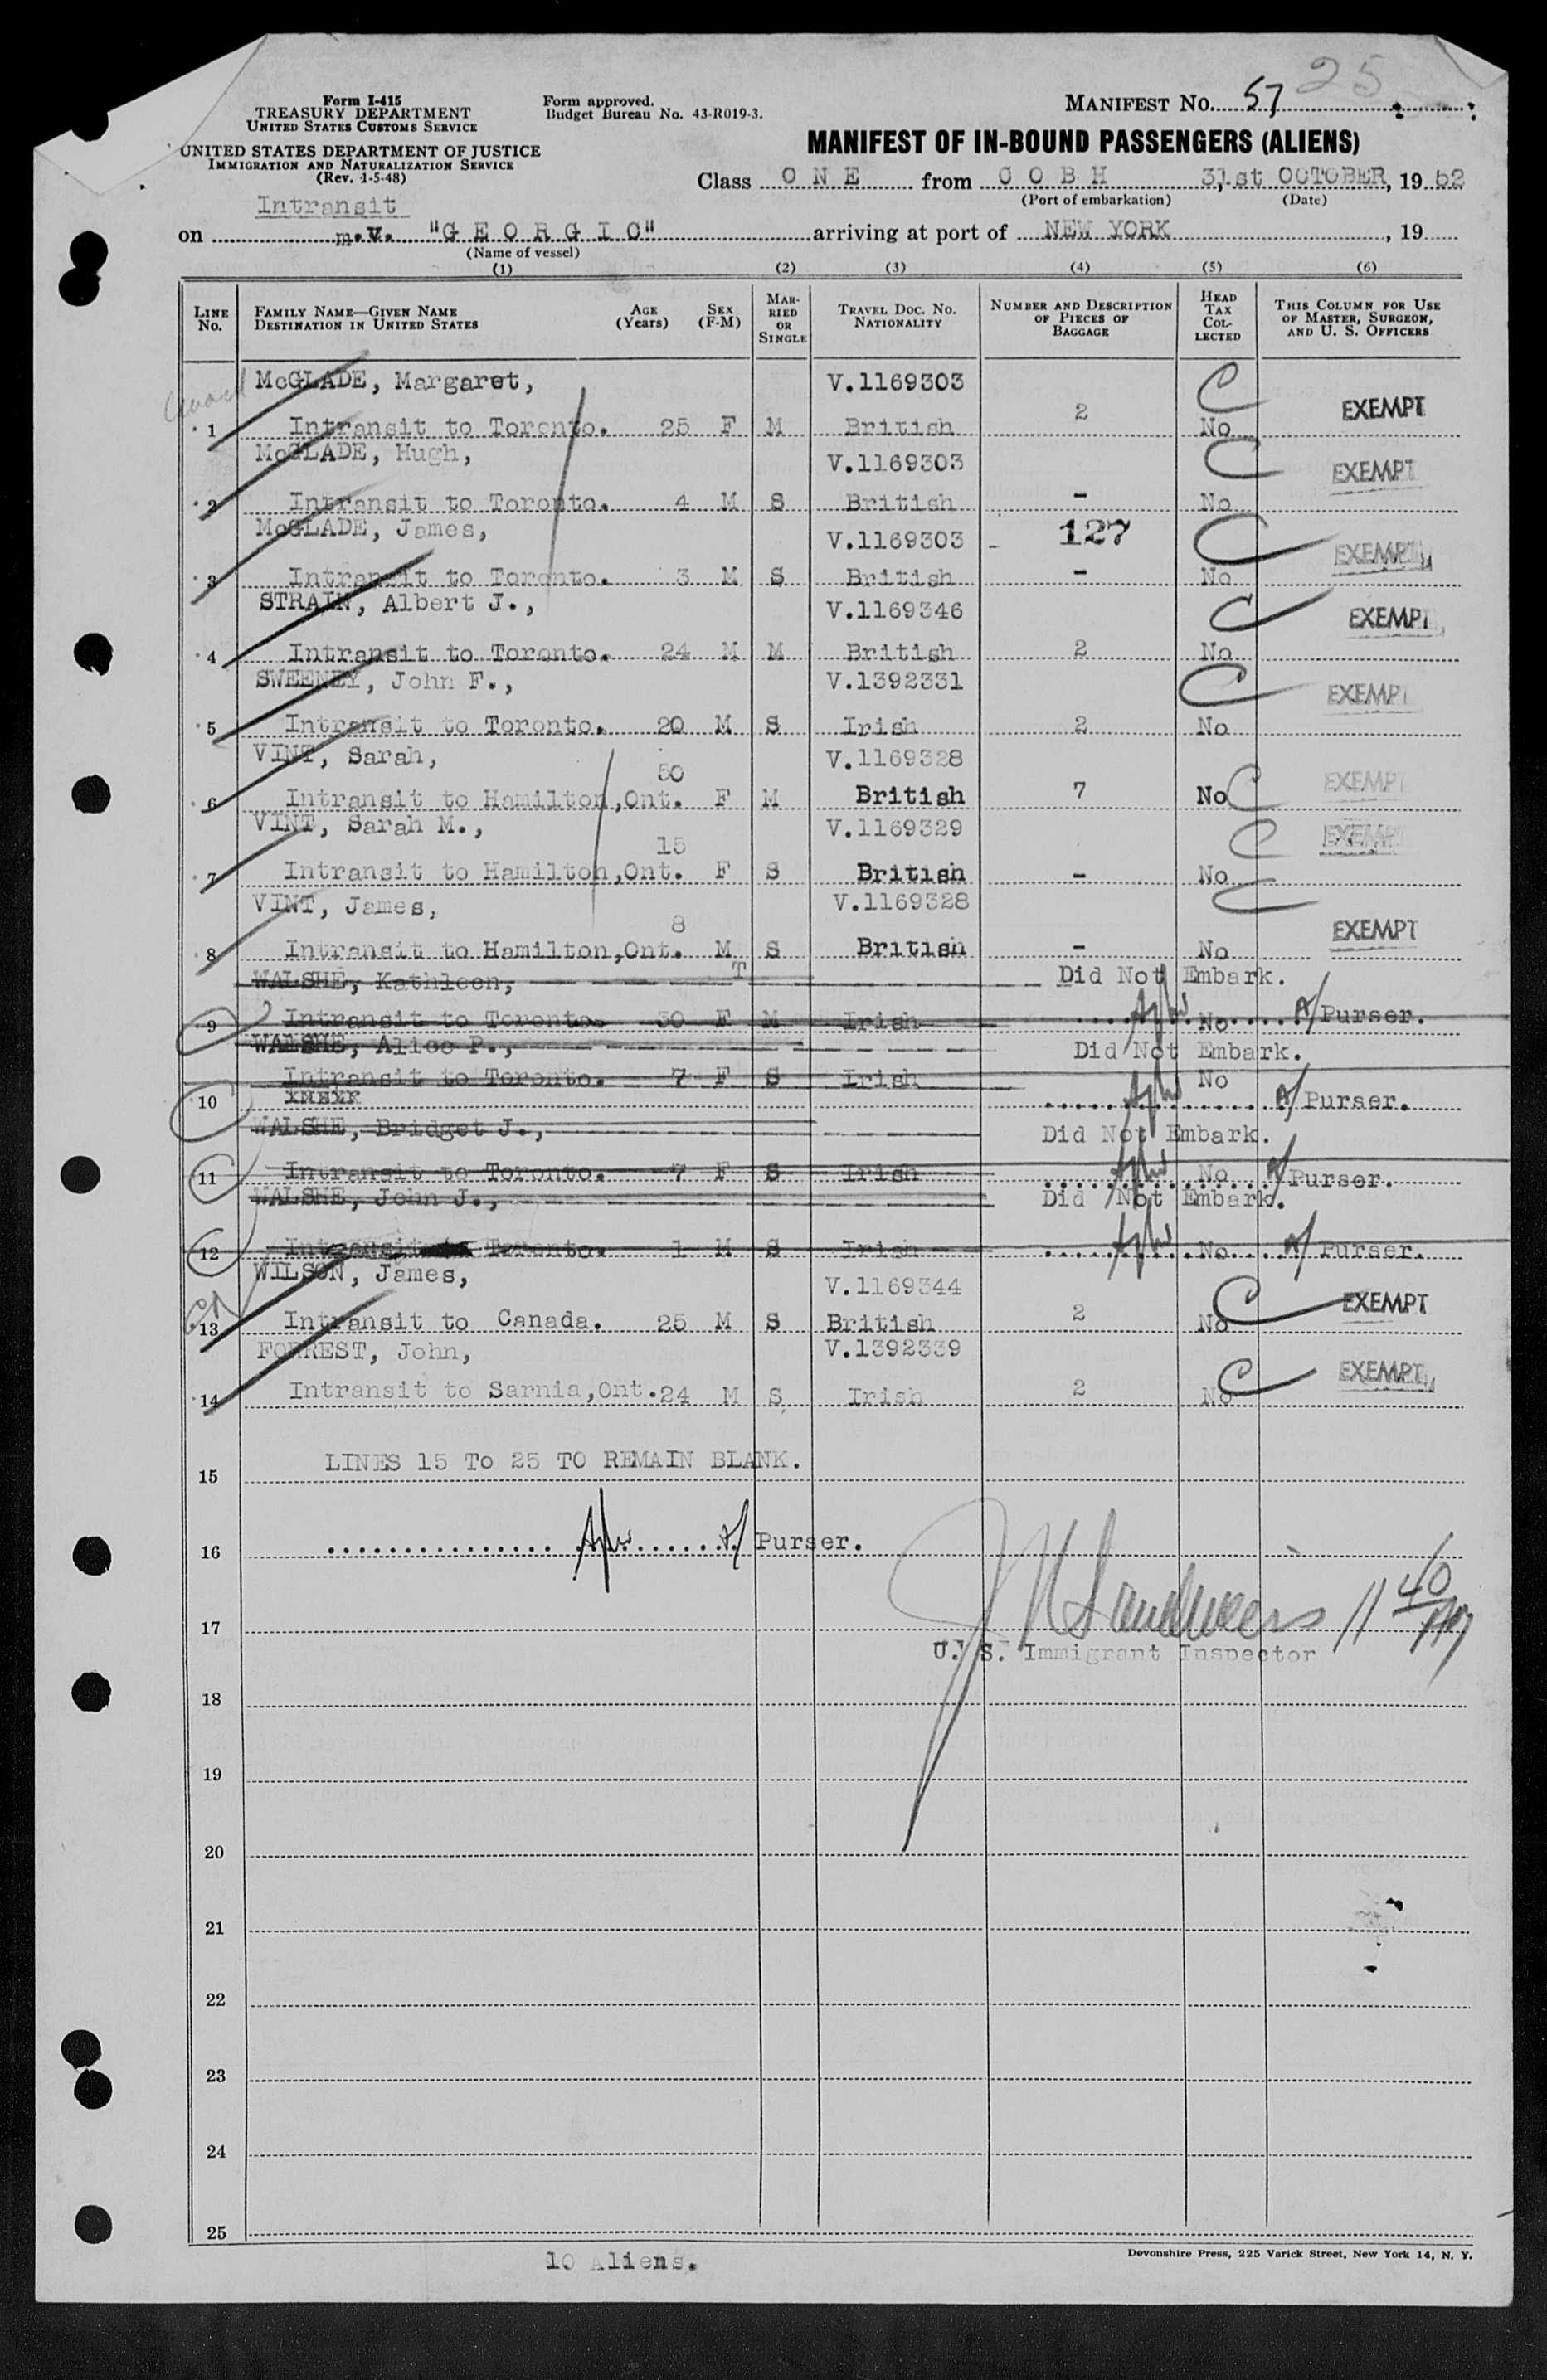 25
Form I-415
TREASURY DEPARTMENT
UNITED STATES CUSTOMS SERVICE
Form approved.
Budget Bureau No. 43-R019-3.
MANIFEST NO. 57
UNITED STATES DEPARTMENT OF JUSTICE
IMMIGRATION AND NATURALIZATION SERVICE
(Rev. 1-5-48)
MANIFEST OF IN-BOUND PASSENGERS (ALIENS)
Class O N E from C O B H 31st OCTOBER, 1952
(Port of embarkation) (Date)
Intransit
on m.v. "G E O R G I C" arriving at port of NEW YORK, 19
(Name of vessel)
(1) (2) (3) (4) (5) (6)
LINE No. FAMILY NAME—GIVEN NAME DESTINATION IN UNITED STATES AGE (Years) SEX (F-M) MARRIED OR SINGLE TRAVEL DOC. NO. NATIONALITY NUMBER AND DESCRIPTION OF PIECES OF BAGGAGE HEAD TAX COLLECTED THIS COLUMN FOR USE OF MASTER, SURGEON, AND U. S. OFFICERS
McGLADE, Margaret, V.1169303 C
1 Intransit to Toronto. 25 F M British 2 No EXEMPT
McGLADE, Hugh, V.1169303 C EXEMPT
2 Intransit to Toronto. 4 M S British - No
McGLADE, James, V.1169303 - 127 C EXEMPT
3 Intransit to Toronto. 3 M S British - No
STRAIN, Albert J., V.1169346 C EXEMPT
4 Intransit to Toronto. 24 M M British 2 No
SWEENEY, John F., V.1392331 C EXEMPT
5 Intransit to Toronto. 20 M S Irish 2 No
VINT, Sarah, V.1169328
6 Intransit to Hamilton,Ont. 50 F M British 7 No C EXEMPT
VINT, Sarah M., V.1169329 C EXEMPT
7 Intransit to Hamilton,Ont. 15 F S British - No
VINT, James, V.1169328 C EXEMPT
8 Intransit to Hamilton,Ont. 8 M S British - No
WALSHE, Kathleen, T Did Not Embark.
9 Intransit to Toronto. 30 F M Irish No Purser.
WALSHE, Alice P., Did Not Embark.
Intransit to Toronto. 7 F S Irish No
10 Purser.
WALSHE, Bridget J., Did Not Embark.
11 Intransit to Toronto. 7 F S Irish No Purser.
WALSHE, John J., Did Not Embark.
12 Intransit to Toronto. 1 M S Irish No Purser.
WILSON, James, V.1169344 C EXEMPT
13 Intransit to Canada. 25 M S British 2 No
FORREST, John, V.1392339 C EXEMPT
14 Intransit to Sarnia,Ont. 24 M S Irish 2 No
15 LINES 15 To 25 TO REMAIN BLANK.
16 Purser.
17 11 40 AM
U. S. Immigrant Inspector
18
19
20
21
22
23
24
25
10 Aliens.
Devonshire Press, 225 Varick Street, New York 14, N. Y.